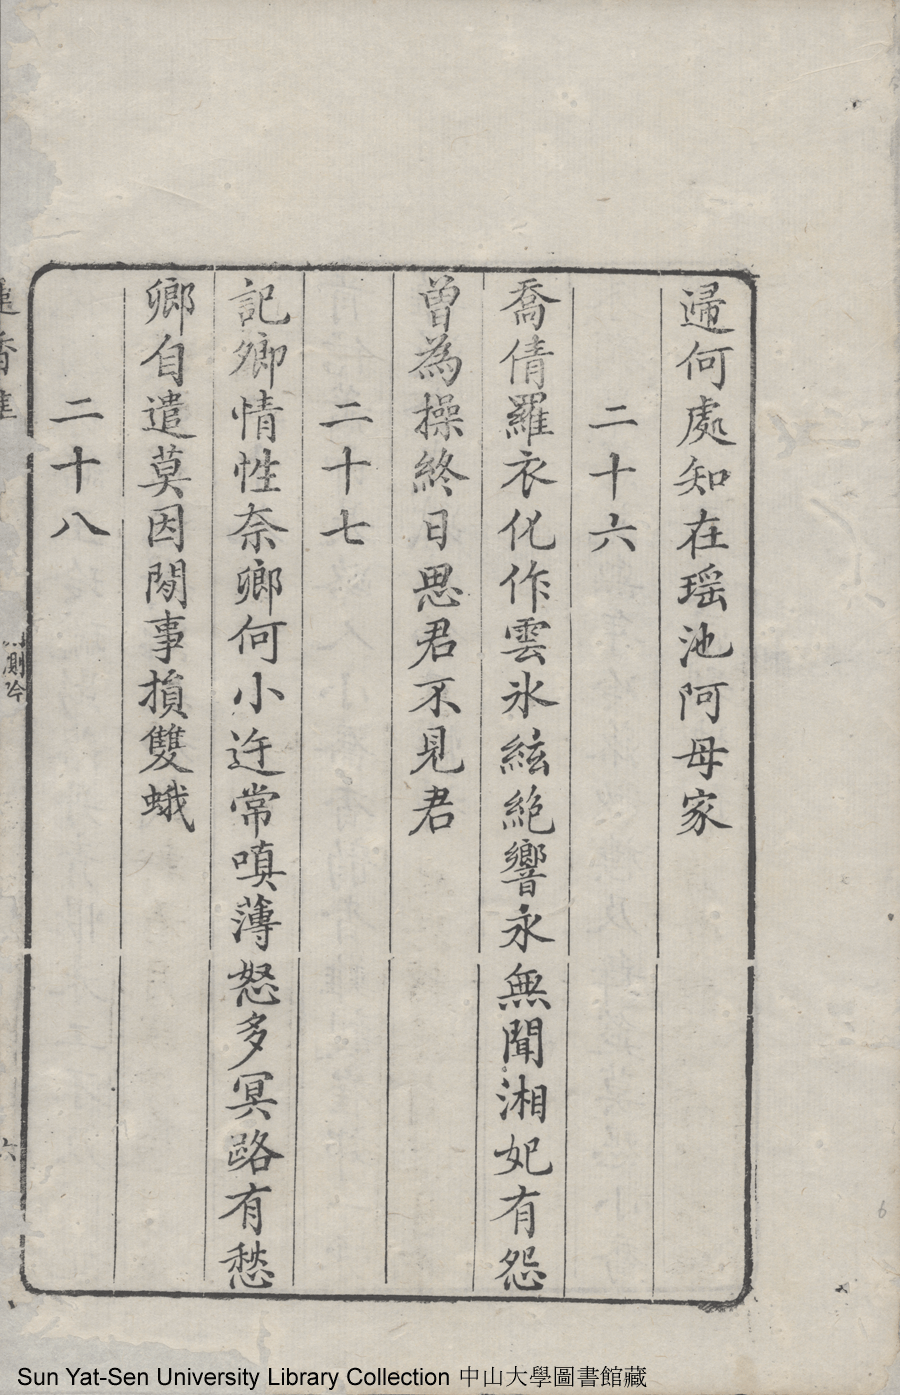 歸何處知在瑶池阿母家
二十六
喬倩羅衣化作雲氷絃絶響永無聞湘妃有怨
曾為操終日思君不見君
二十七
記卿情性奈卿何小迕常嗔薄怒多冥路有愁
卿自遣莫因閒事損雙蛾
二十八
六
6
Sun Yat-Sen University Library Collection 中山大學圖書館藏